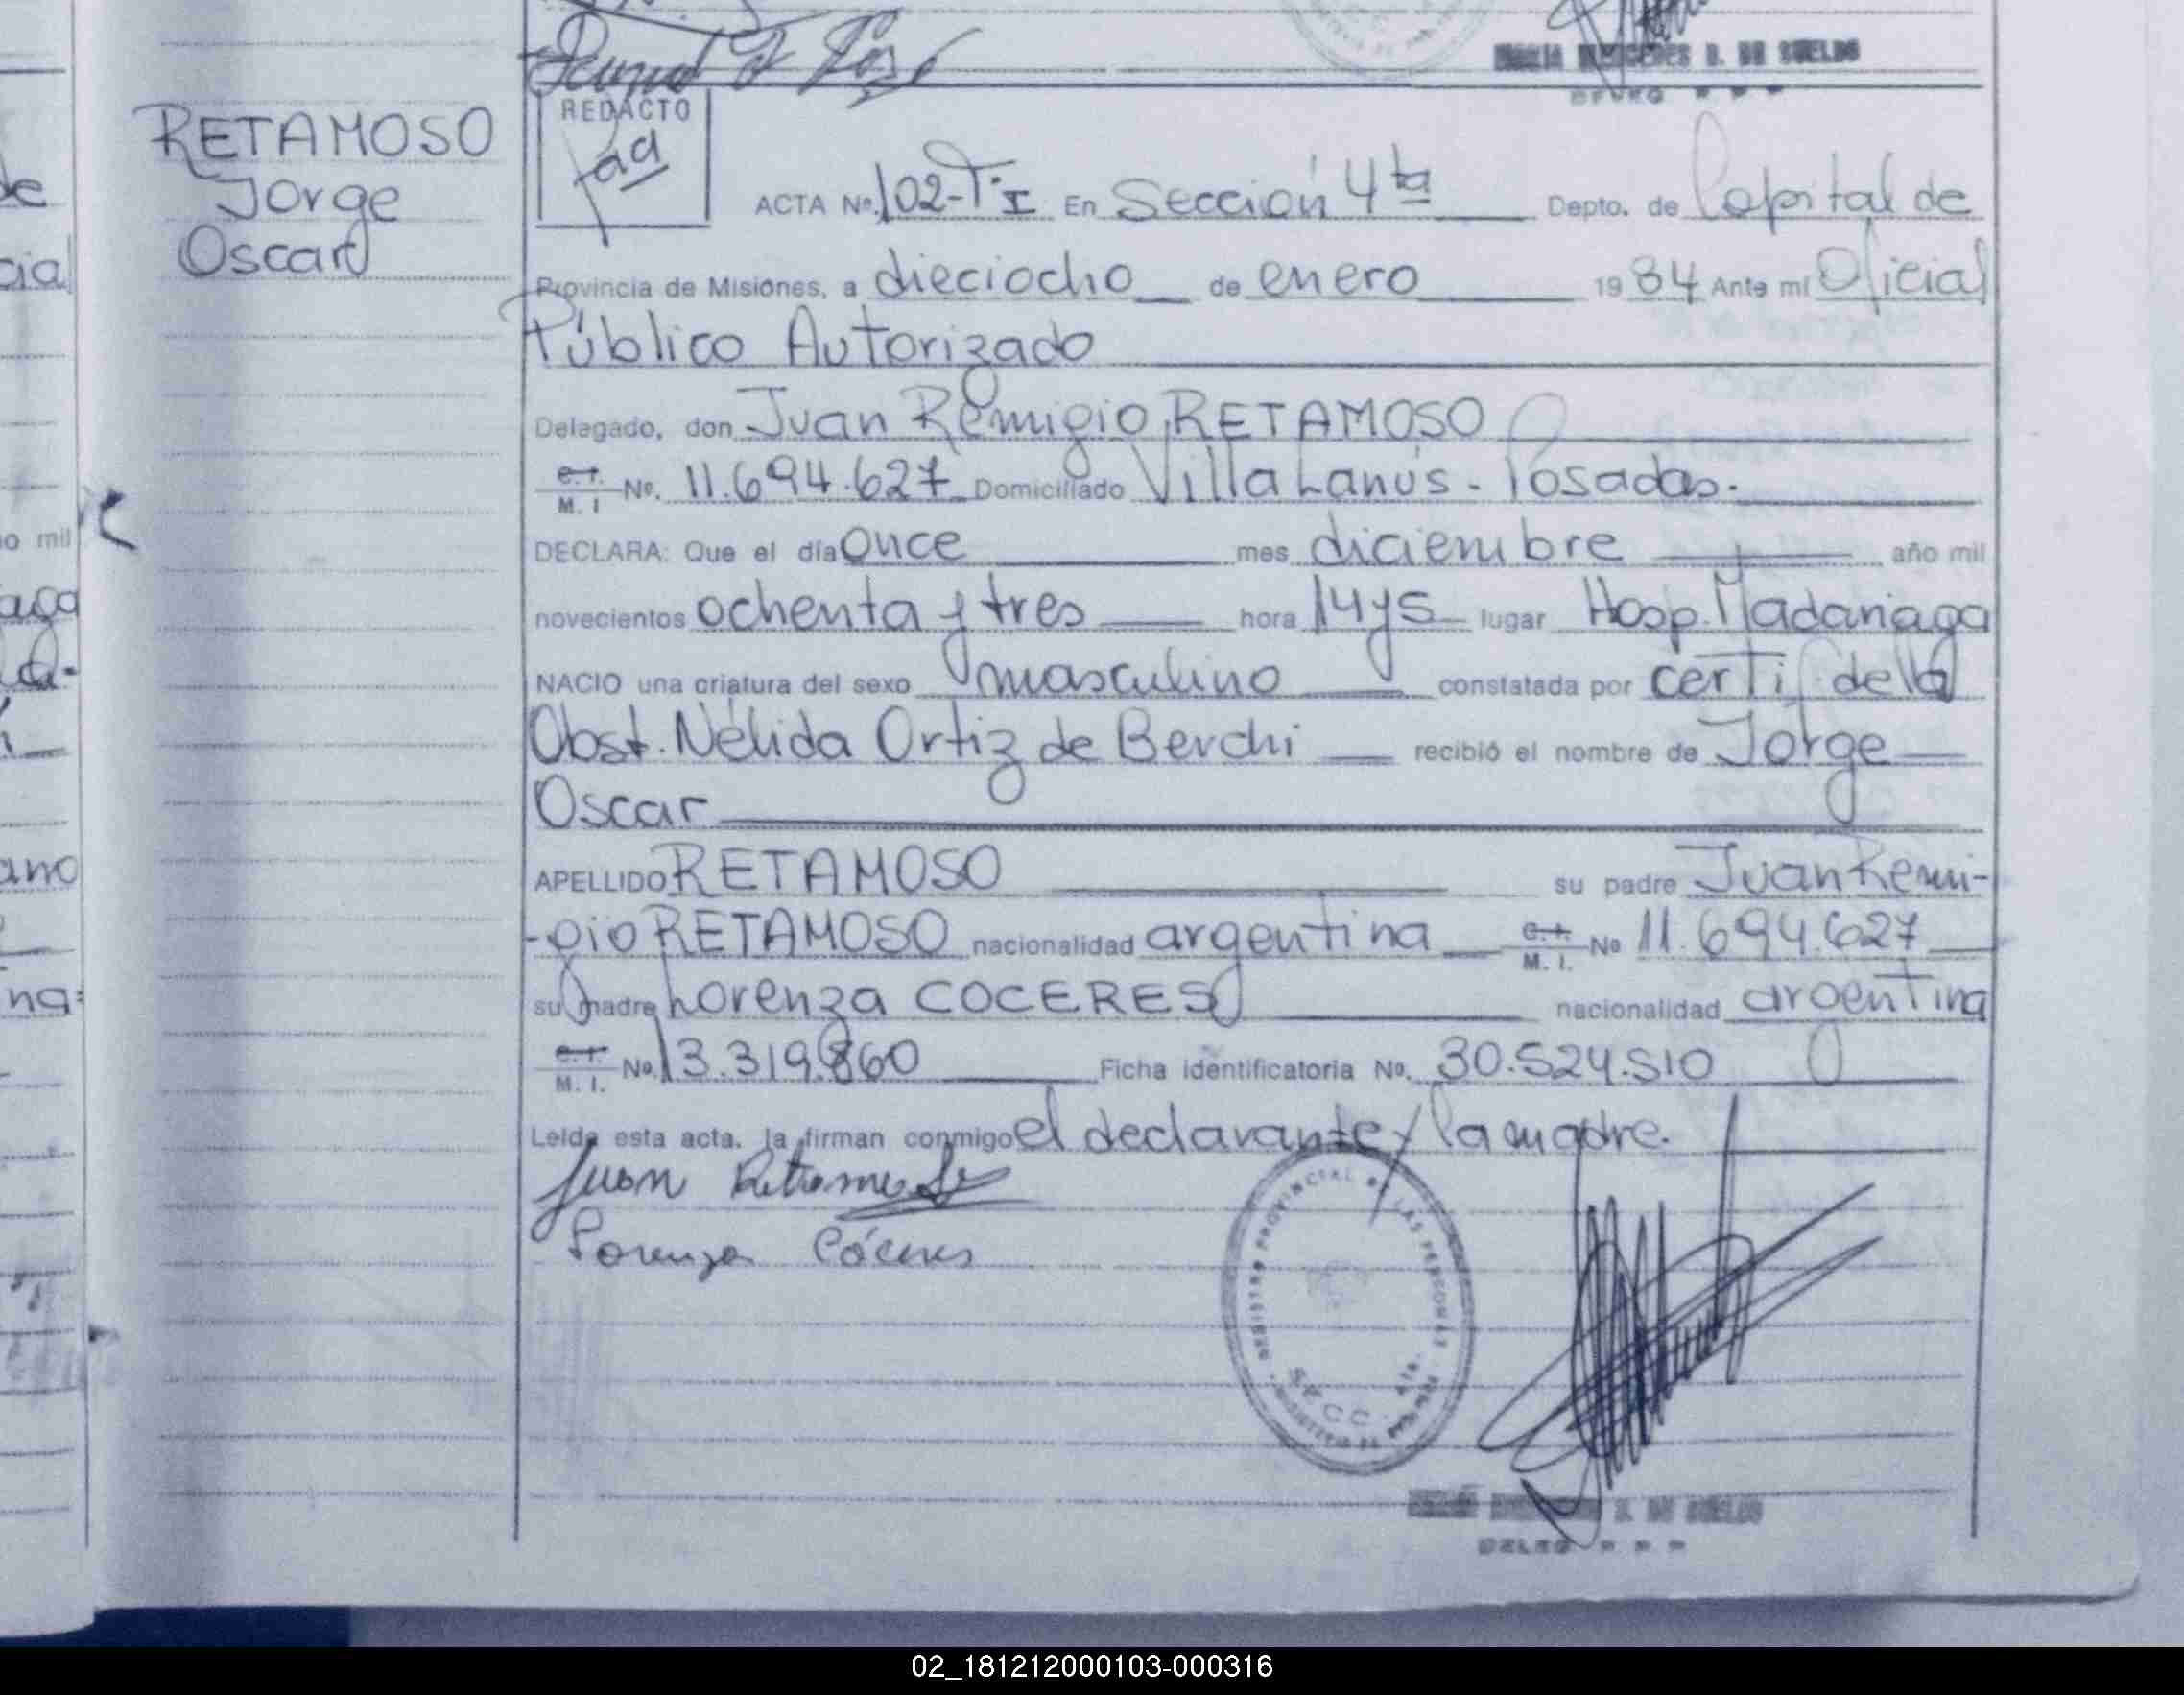 RETAMOSO
Jorge
Oscar
REDACTO
ACTA Nº. 102-Tº I En Sección 4ta Depto. de Capital de
Provincia de Misiones, a dieciocho de enero 1984 Ante mí Oficial
Público Autorizado
Delegado, don Juan Remigio RETAMOSO
C.I. M. I Nº. 11.694.627 Domiciliado Villa Lanús - Posadas.
DECLARA: Que el día once mes diciembre año mil
novecientos ochenta y tres hora 14 y 5 lugar Hosp. Madariaga
NACIO una criatura del sexo masculino constatada por certif. de la
Obst. Nélida Ortiz de Berchi recibió el nombre de Jorge
Oscar
APELLIDO RETAMOSO su padre Juan Remi-
-gio RETAMOSO nacionalidad argentina C.I. M. I. Nº 11.694.627
su madre Lorenza COCERES nacionalidad argentina
C.I. M. I. Nº. 13.319.860 Ficha identificatoria No. 30.524.510
Leída esta acta, la firman conmigo el declarante y la madre.
Juan Retamoso
Lorenza Cóceres
REGISTRO PROVINCIAL DE LAS PERSONAS
SECC. 4ta.
DE SUELDO
02_181212000103-000316